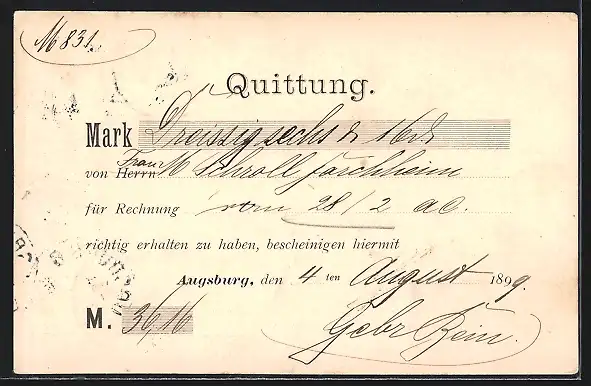 M 831.
Quittung.
Mark Dreissigsechs & 16 d
Frau
von Herrn M Schroll Forchheim
für Rechnung vom 28/2 ac.
richtig erhalten zu haben, bescheinigen hiermit
Augsburg, den 4 ten August 1899.
M. 36/16
Gebr